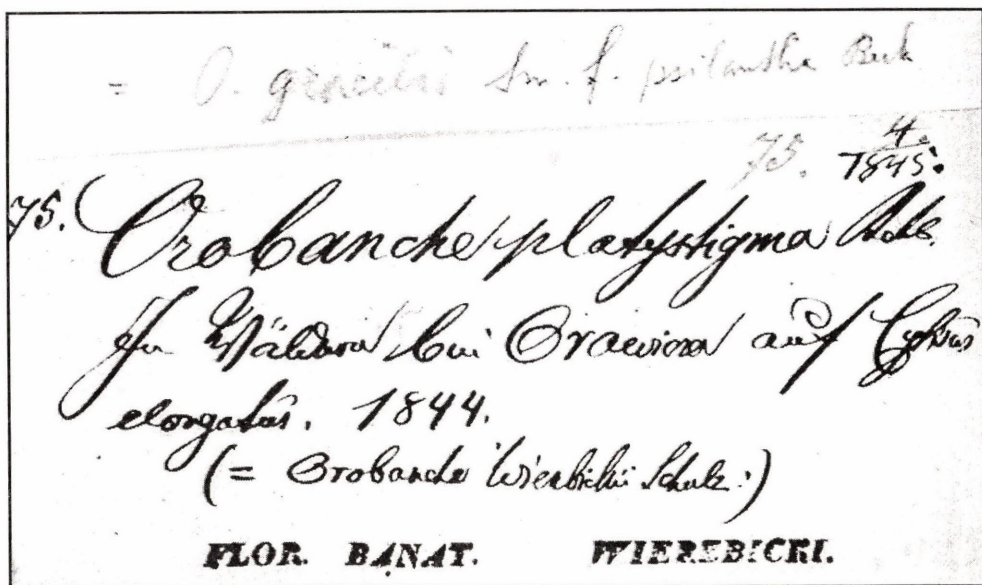 = O. gracilis Sm. f. psilantha Beck
75. 4./1845.
75. Orobanche platystigma Rchb.
In Wäldern bei Orawicza auf Cytisus
elongatus. 1844.
(= Orobanche Wierbickii Schulz.)
FLOR. BANAT. WIEREBICKI.